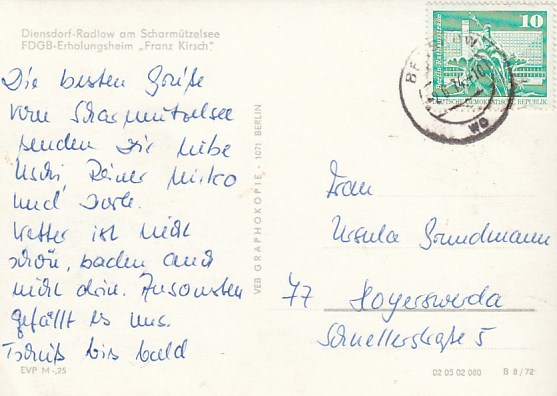 Diensdorf-Radlow am Scharmützelsee
FDGB-Erholungsheim „Franz Kirsch"
Die besten Grüße
vom Scharmützelsee
senden Dir liebe
Uschi, Reiner Mirko
und Dorle.
Wetter ist nicht
schön, baden auch
nicht drin. Ansonsten
gefällt es uns.
Tschüß bis bald
EVP M -,25
VEB GRAPHOKOPIE · 1071 BERLIN
10
DEUTSCHE DEMOKRATISCHE REPUBLIK
Frau
Ursula Grundmann
77 Hoyerswerda
Schnellerstraße 5
02 05 02 080 B 8/72